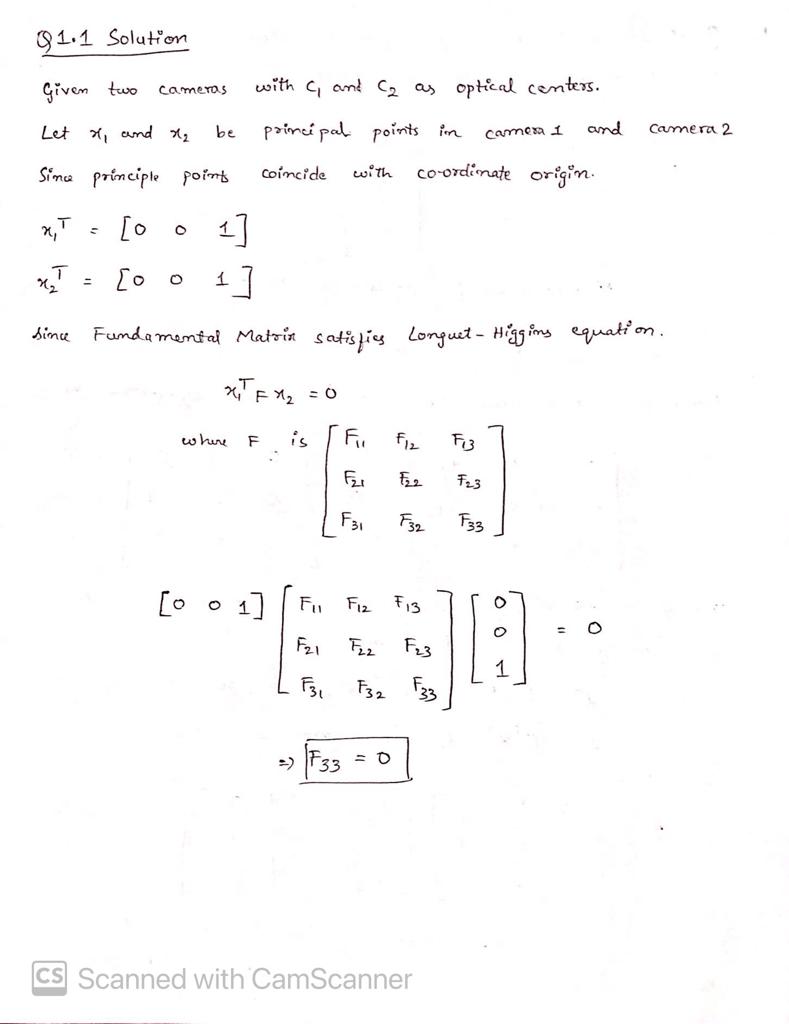 Q 1.1 Solution
Given two cameras with C₁ and C₂ as optical centers.
Let x₁ and x₂ be principal points in camera 1 and camera 2
Since principle points coincide with co-ordinate origin.
x₁ᵀ = [0 0 1]
x₂ᵀ = [0 0 1]
Since Fundamental Matrix satisfies Longuet-Higgins equation.
x₁ᵀ F x₂ = 0
where F is [F₁₁ F₁₂ F₁₃
F₂₁ F₂₂ F₂₃
F₃₁ F₃₂ F₃₃]
[0 0 1] [F₁₁ F₁₂ F₁₃ [0
F₂₁ F₂₂ F₂₃ 0 = 0
F₃₁ F₃₂ F₃₃] 1]
=> F₃₃ = 0
CS Scanned with CamScanner